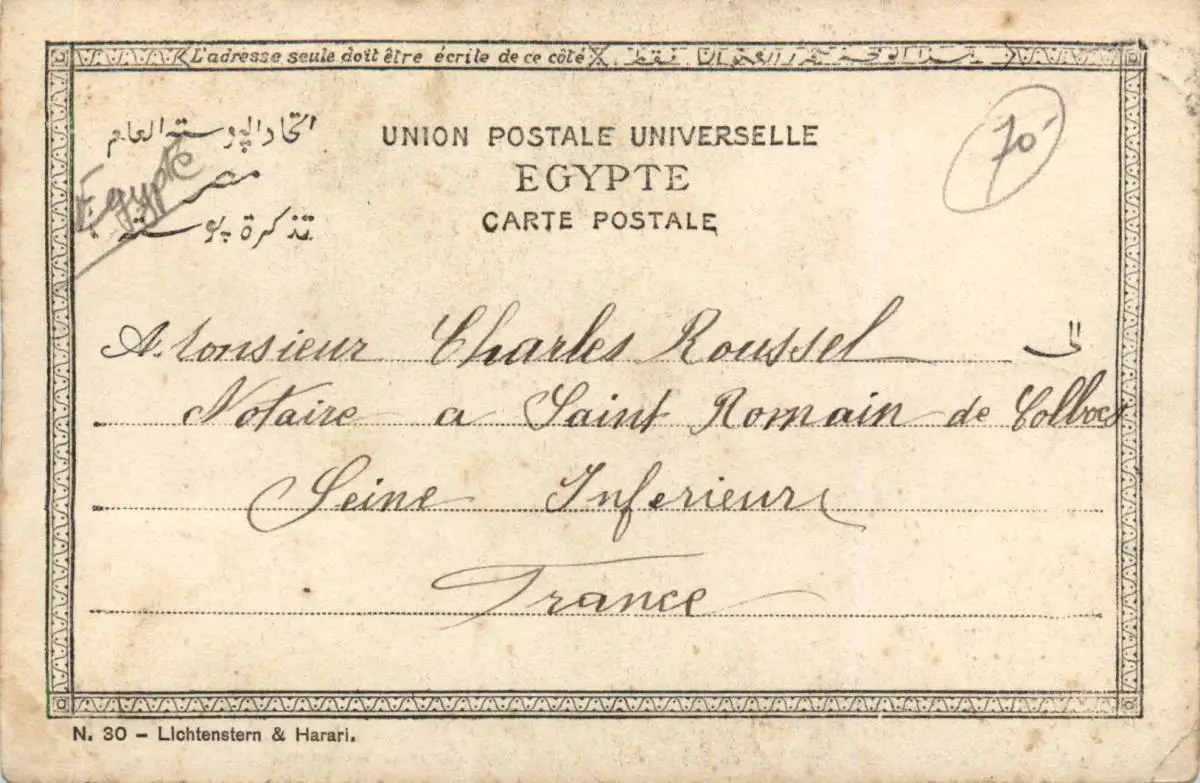 L'adresse seule doit être écrite de ce côté
اتحاد البوسته العام
UNION POSTALE UNIVERSELLE
70
Egypte
مصر
EGYPTE
تذكرة بوسته
CARTE POSTALE
Monsieur Charles Roussel
الى
Notaire a Saint Romain de Colbocs
Seine Inferieure
France
N. 30 – Lichtenstern & Harari.